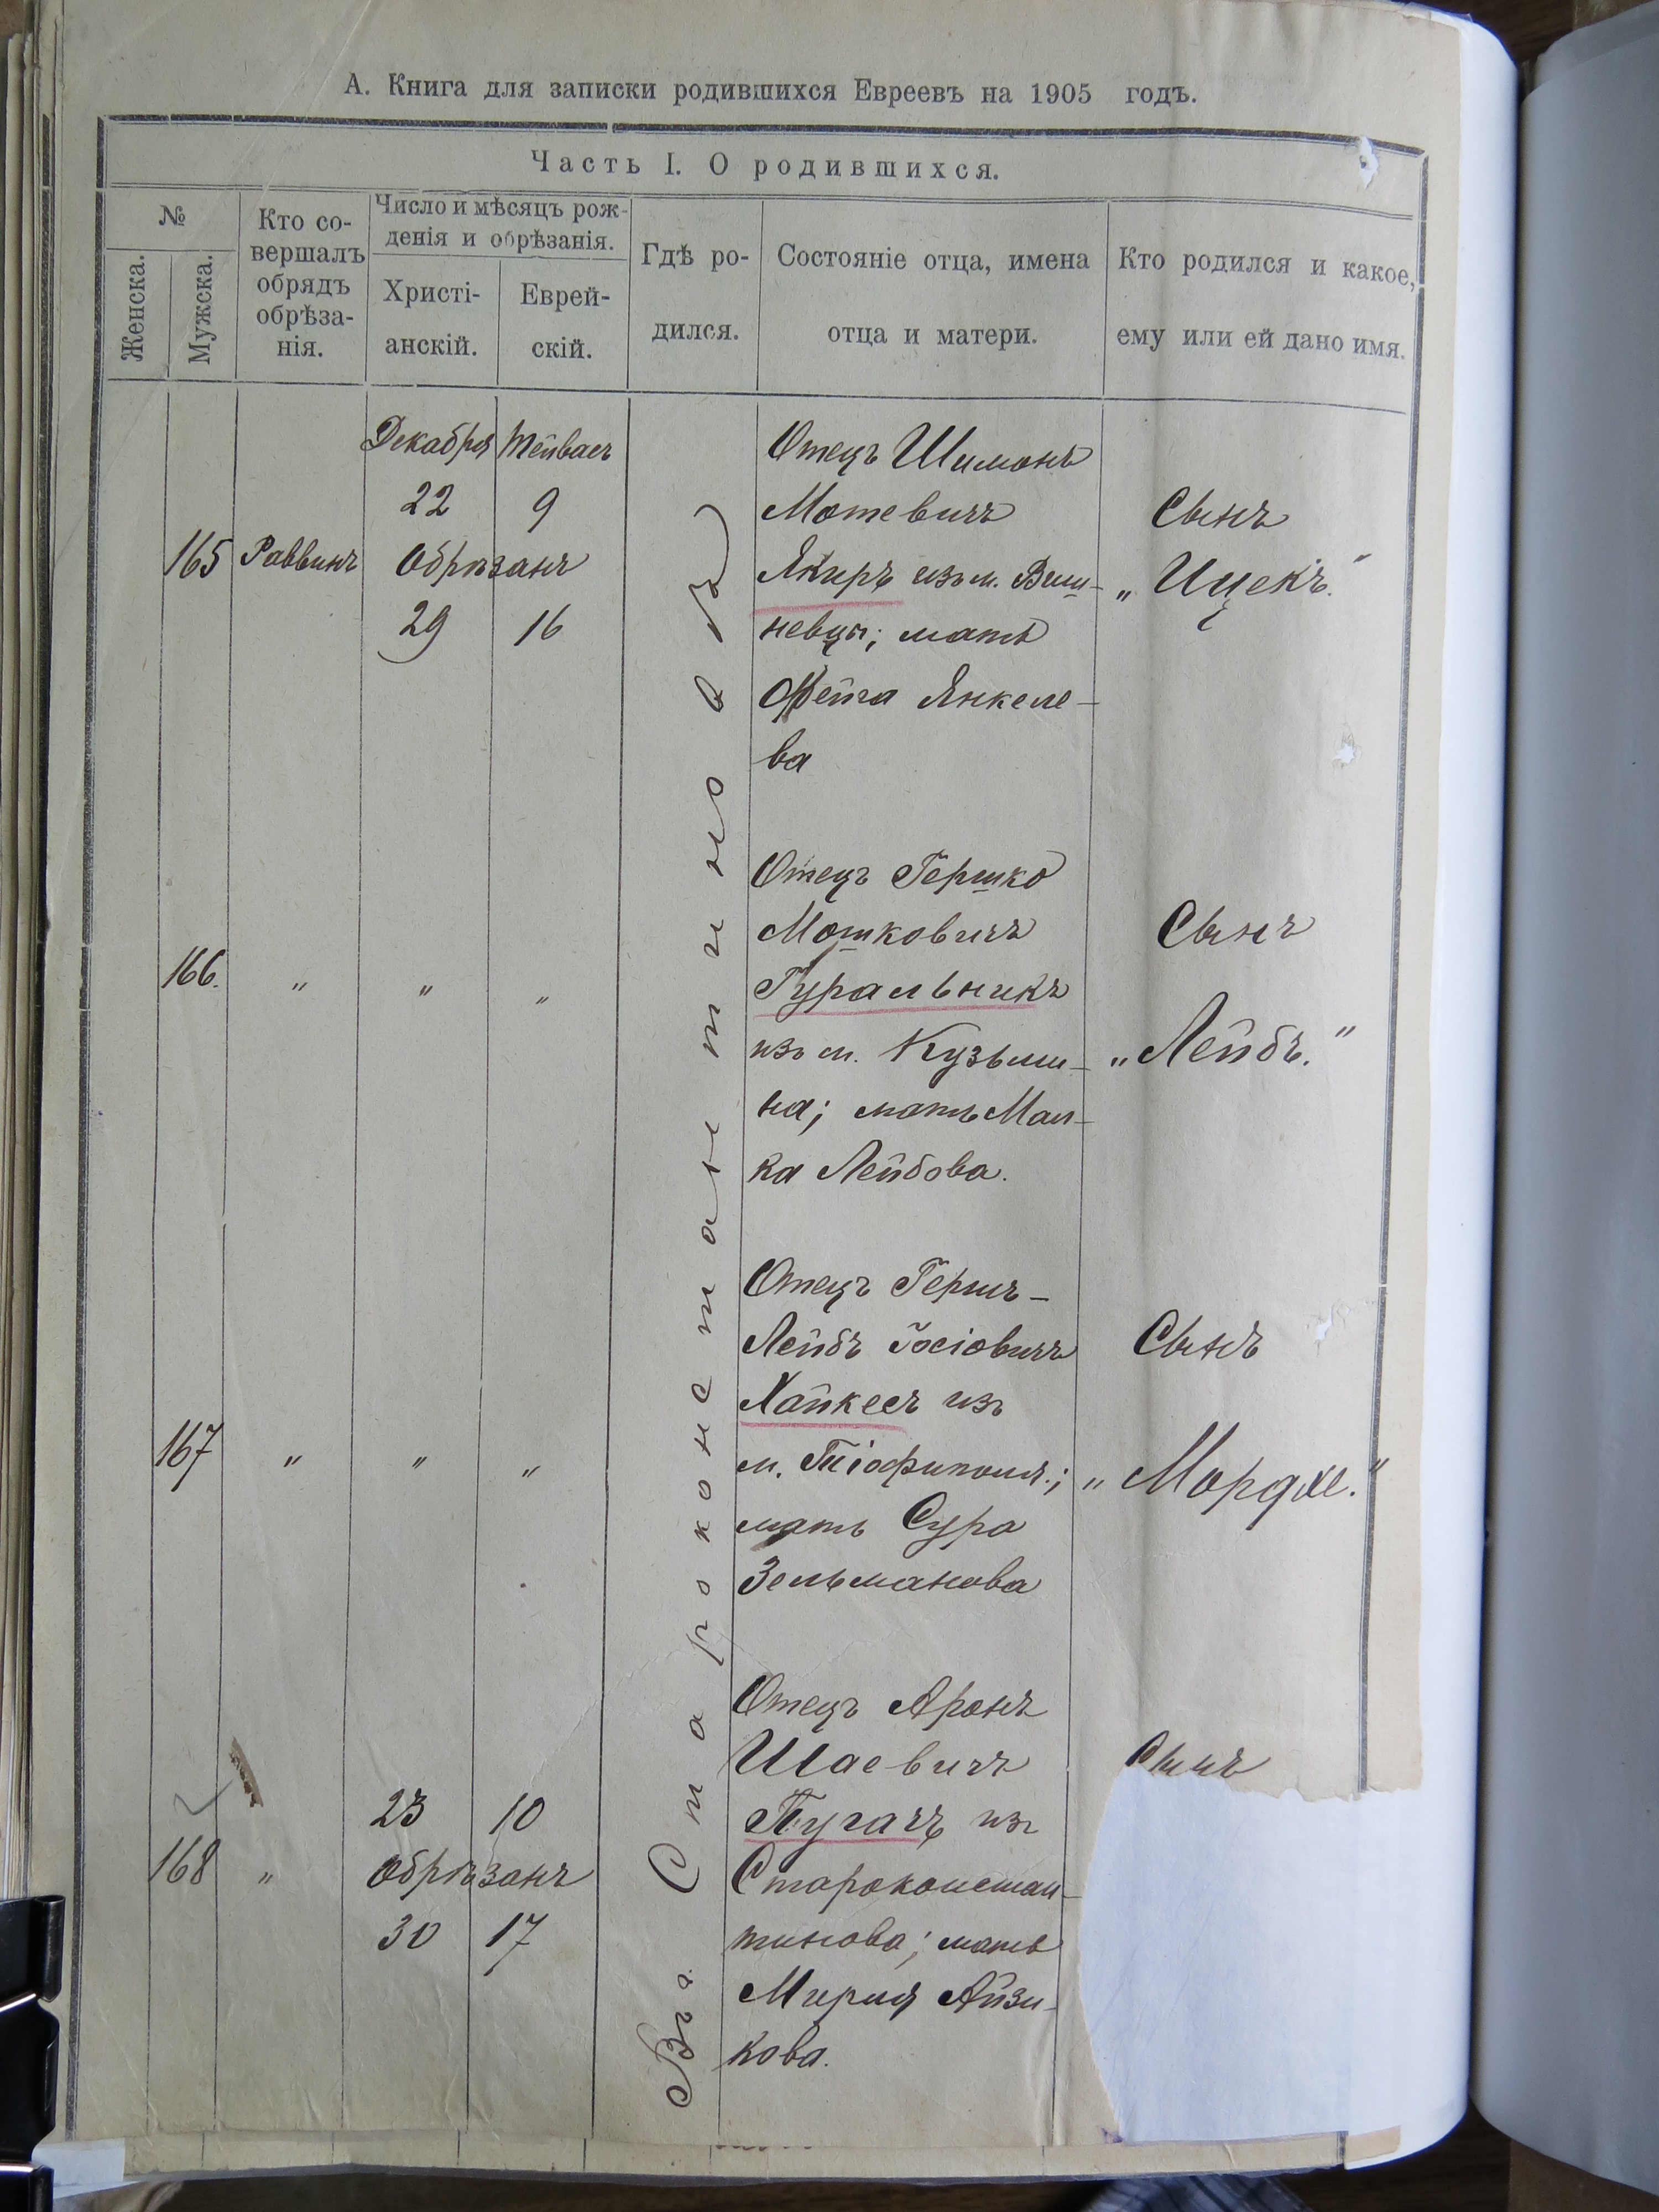 А. Книга для записки родившихся Евреевъ на 1905 годъ.
Часть I. О родившихся.
№
Женска.
Мужска.
Кто со-
вершалъ
обрядъ
обрѣза-
нія.
Число и мѣсяцъ рож-
денія и обрѣзанія.
Христі-
анскій.
Еврей-
скій.
Гдѣ ро-
дился.
Состояніе отца, имена
отца и матери.
Кто родился и какое,
ему или ей дано имя.
Въ г. Староконстантиновѣ
Декабря Тейвасъ
22 9
165 Раввинъ Обрѣзанъ
29 16
Отецъ Шимонъ
Мотевичъ
Якиръ изъ м. Виш-
невцы; мать
Фейга Янкеле-
ва
Сынъ
„Ицекъ."
166. " " "
Отецъ Гершко
Мошковичъ
Гуральникъ
изъ м. Кузьми-
на; мать Мал-
ка Лейбова.
Сынъ
„Лейбъ."
167 " " "
Отецъ Гершъ-
Лейбъ Іосіовичъ
Хайкесъ изъ
м. Тіофиполя.;
мать Сура
Зельманова
Сынъ
„Мордхе."
23 10
168 " Обрѣзанъ
30 17
Отецъ Аронъ
Шаевичъ
Пугачъ изъ
Староконстан-
тинова; мать
Мирия Айзи-
кова.
Сынъ